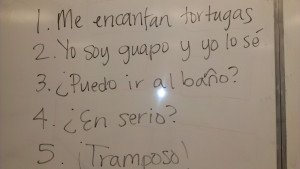 1. Me encantan tortugas
2. Yo soy guapo y yo lo sé
3. ¿Puedo ir al baño?
4. ¿En serio?
5. ¡Tramposo!